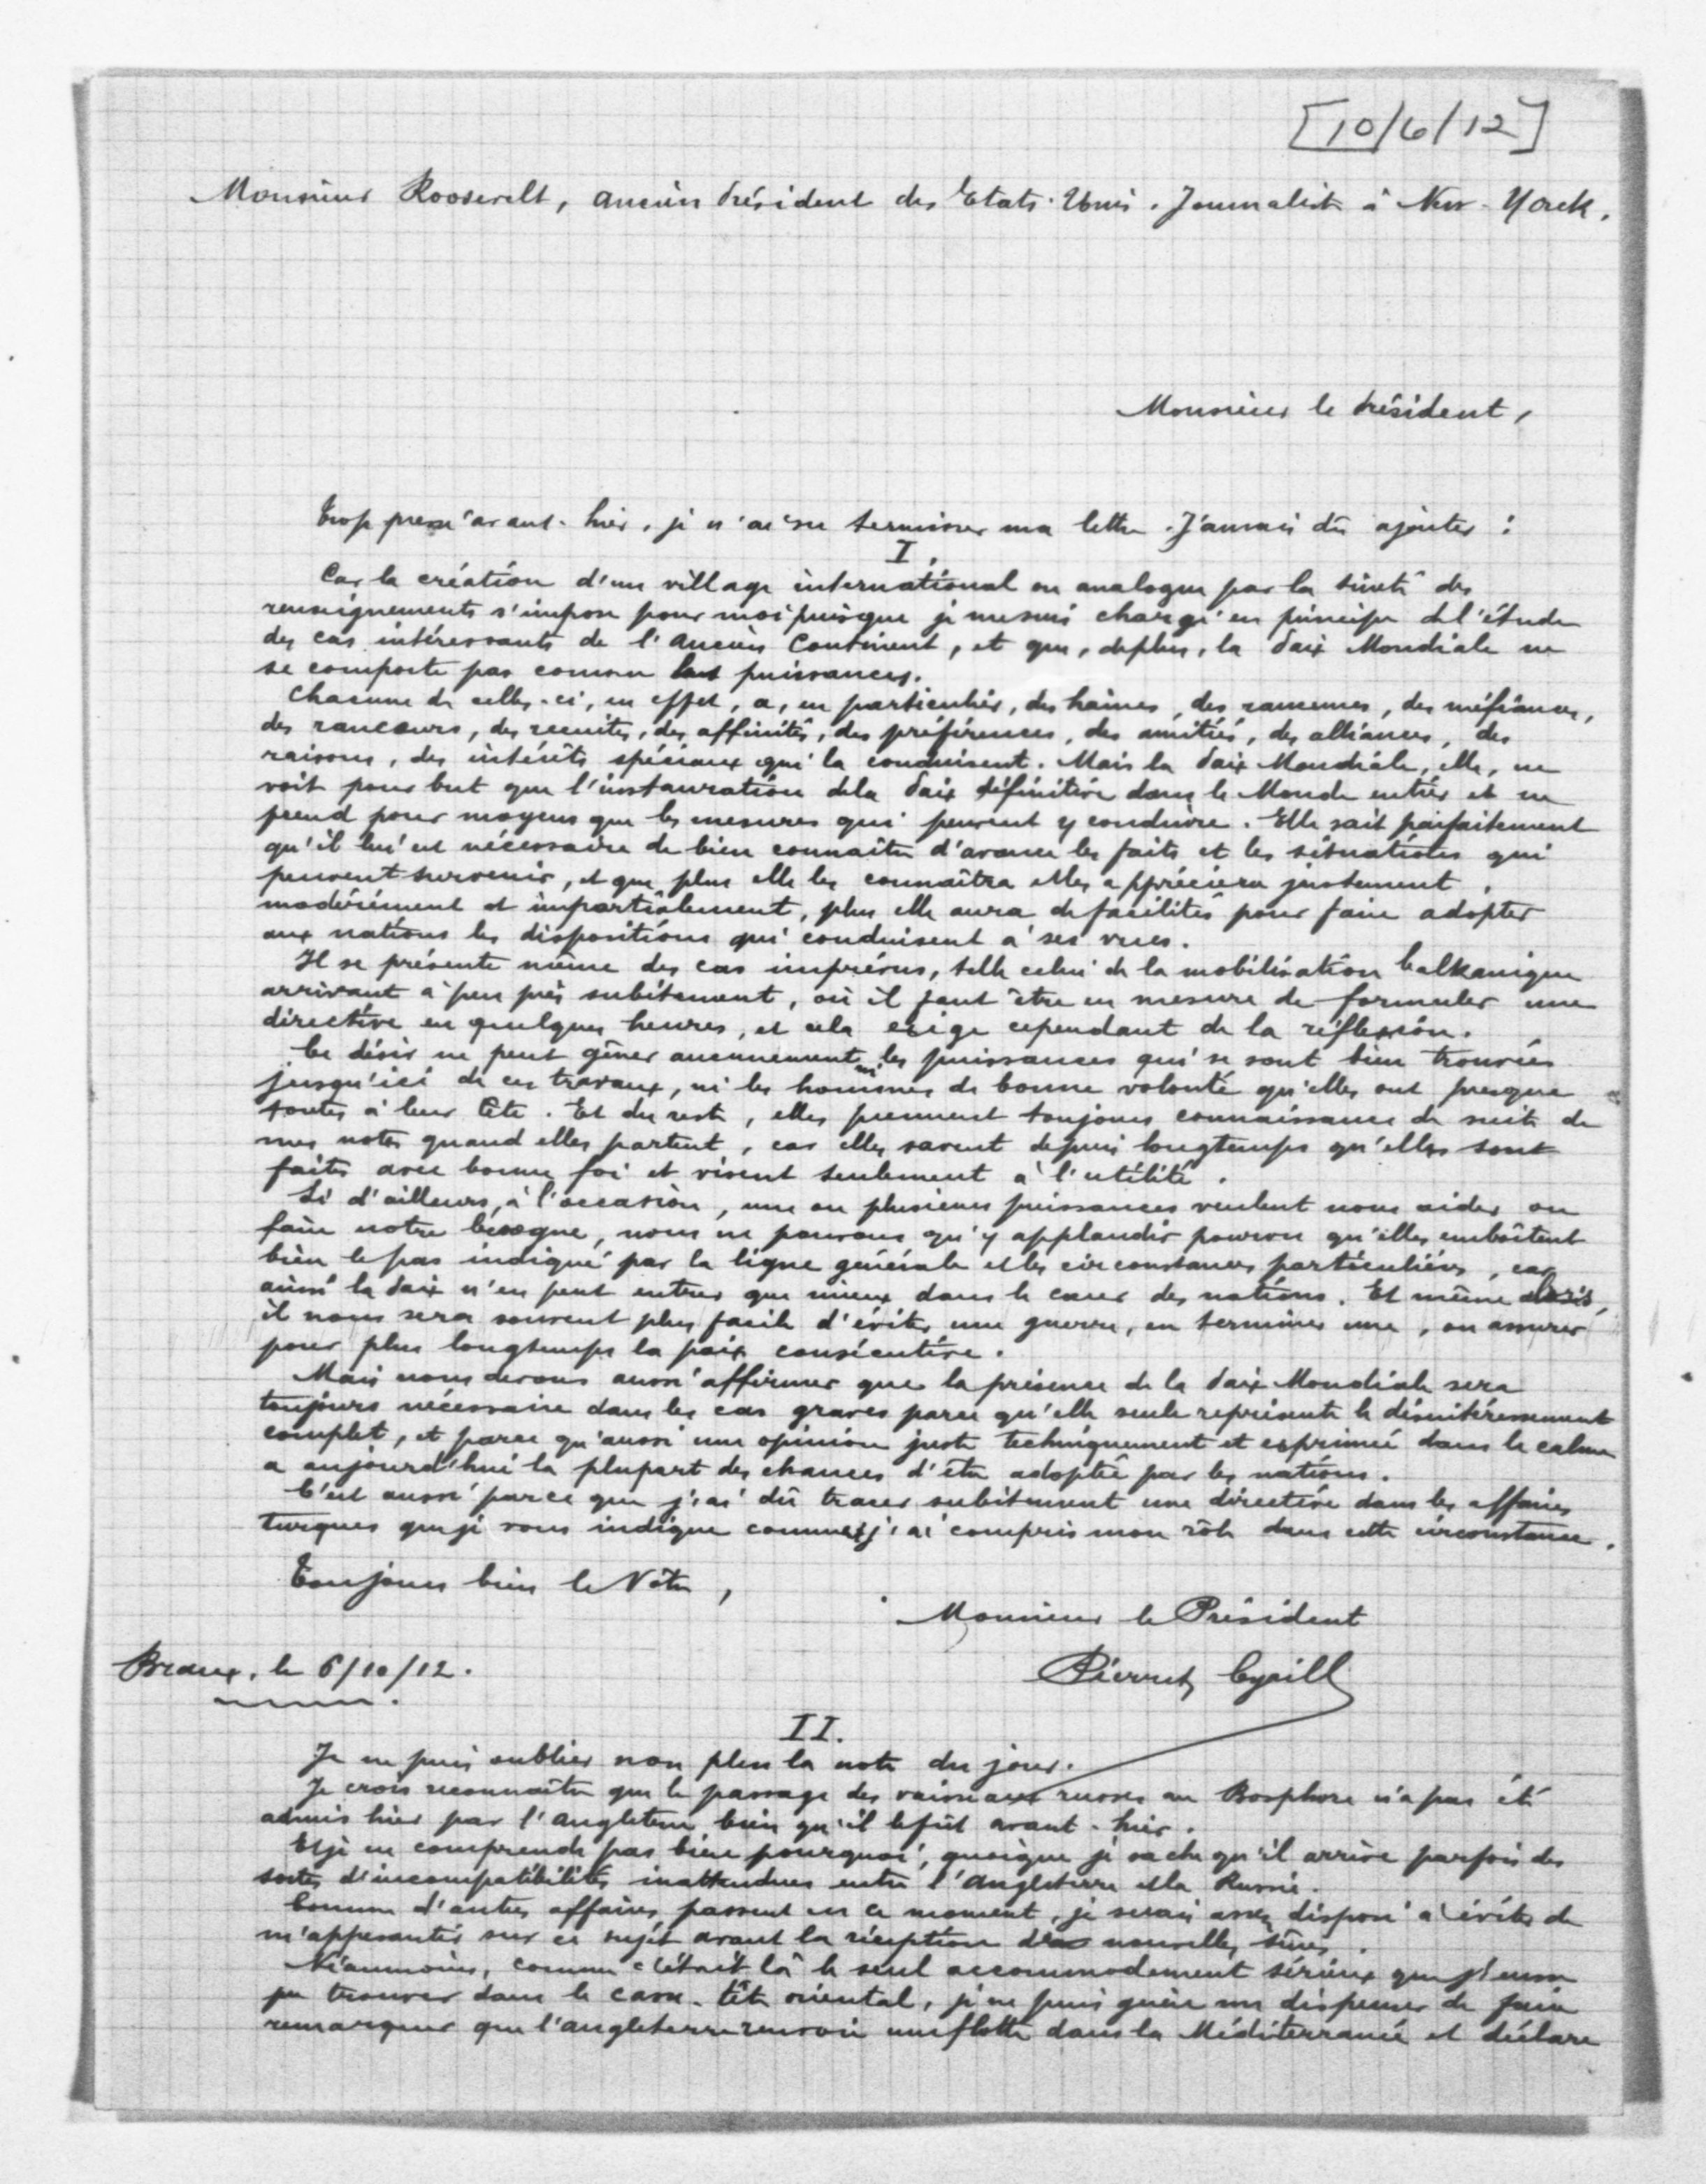 [10/6/12]
Monsieur Roosevelt, ancien Président des Etats-Unis. Journaliste à New-Yorck.
Monsieur le Président,
Trop pressé avant-hier, je n'ai su terminer ma lettre. J'aurais dû ajouter :
I.
Car la création d'un village international ou analogue par la sûreté des
renseignements s'impose pour moi puisque je me suis chargé en principe de l'étude
des cas intéressants de l'Ancien Continent, et que, de plus, la Paix Mondiale ne
se comporte pas comme les puissances.
Chacune de celles-ci, en effet, a, en particulier, des haines, des rancunes, des méfiances,
des rancœurs, des affinités, des préférences, des amitiés, des alliances, des
raisons, des intérêts spéciaux qui la conduisent. Mais la Paix Mondiale, elle, ne
voit pour but que l'instauration de la Paix définitive dans le Monde entier et ne
prend pour moyens que les mesures qui peuvent y conduire. Elle sait parfaitement
qu'il lui est nécessaire de bien connaître d'avance les faits et les situations qui
peuvent survenir, et que, plus elle les connaîtra et les appréciera justement,
modérément et impartialement, plus elle aura de facilités pour faire adopter
aux nations les dispositions qui conduisent à ses vues.
Il se présente même des cas imprévus, telle celui de la mobilisation balkanique
arrivant à peu près subitement, où il faut être en mesure de formuler une
directive en quelques heures, et cela exige cependant de la réflexion.
Ce désir ne peut gêner aucunement ni les puissances qui se sont bien trouvées
jusqu'ici de ces travaux, ni les hommes de bonne volonté qu'elles ont presque
toutes à leur tête. Et du reste, elles prennent toujours connaissance de suite de
mes notes quand elles partent, car elles savent depuis longtemps qu'elles sont
faites avec bonne foi et visent seulement à l'utilité.
Si d'ailleurs, à l'occasion, une ou plusieurs puissances veulent nous aider ou
faire notre besogne, nous ne pouvons qu'y applaudir pourvu qu'elles emboîtent
bien le pas indiqué par la ligne générale et les circonstances particulières, car
ainsi la Paix n'en peut entrer que mieux dans le cœur des nations. Et même alors,
il nous sera souvent plus facile d'éviter une guerre, en terminer une, ou assurer
pour plus longtemps la paix consécutive.
Mais nous devons aussi affirmer que la présence de la Paix Mondiale sera
toujours nécessaire dans les cas graves parce qu'elle seule représente le désintéressement
complet, et parce qu'aussi une opinion juste techniquement et exprimée dans le calme
a aujourd'hui la plupart des chances d'être adoptée par les nations.
C'est aussi parce que j'ai dû tracer subitement une directive dans les affaires
turques que je vous indique comment j'ai compris mon rôle dans cette circonstance.
Toujours bien le Vôtre,
Monsieur le Président
Breux, le 6/10/12.
Pierret Cyrill
II.
Je ne puis oublier non plus la note du jour.
Je crois reconnaître que le passage des vaisseaux russes au Bosphore n'a pas été
admis hier par l'Angleterre bien qu'il le fût avant-hier.
Et je ne comprends pas bien pourquoi, quoique je sache qu'il arrive parfois des
sortes d'incompatibilités inattendues entre l'Angleterre et la Russie.
Comme d'autres affaires passent en ce moment, je serais assez disposé à éviter de
m'appesantir sur ce sujet avant la réception de nouvelles sûres.
Néanmoins, comme c'était là le seul accommodement sérieux que j'eusse
pu trouver dans le casse-tête oriental, je ne puis guère me dispenser de faire
remarquer que l'Angleterre renvoie une flotte dans la Méditerranée et déclare